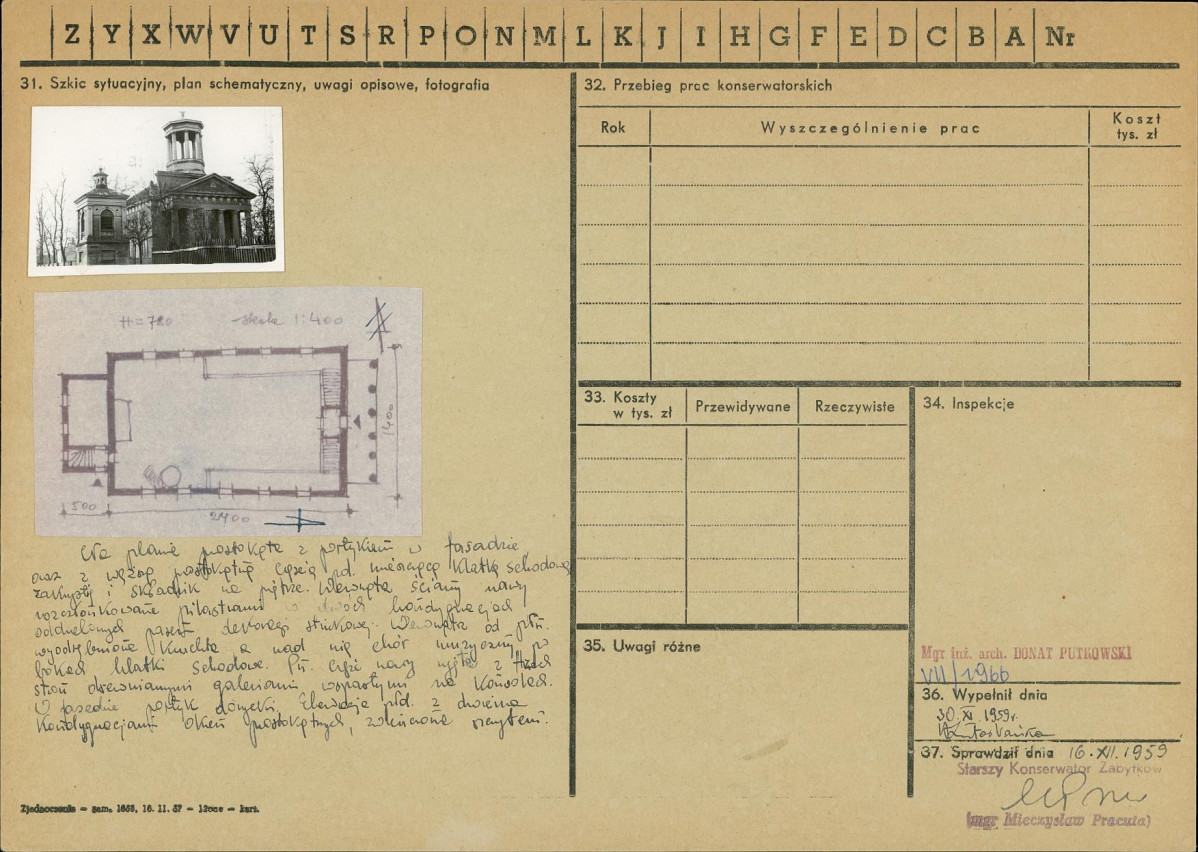 Z Y X W V U T S R P O N M L K J I H G F E D C B A Nr
31. Szkic sytuacyjny, plan schematyczny, uwagi opisowe, fotografia
H = 780 skala 1:400
1400
500
2400
Na planie prostokąta z portykiem w fasadzie
oraz z węższą prostokątną częścią pd. mieszczącą klatkę schodową
zakrystię i składzik na piętrze. Wewnątrz ściany nawy
rozczłonkowane pilastrami w dwóch kondygnacjach
oddzielonych pasem dekoracji stiukowej. Wewnątrz od płn.
wyodrębniona kruchta a nad nią chór muzyczny, po
bokach klatki schodowe. Pn. część nawy ujęta z trzech
stron drewnianymi galeriami wspartymi na konsolach.
W fasadzie portyk dorycki. Elewacja płd. z dwiema
kondygnacjami okien prostokątnych, zwieńczona szczytem.
Zjednoczenie — zam. 1655, 16. 11. 57 — — kart.
32. Przebieg prac konserwatorskich
Rok Wyszczególnienie prac Koszt
tys. zł
33. Koszty
w tys. zł Przewidywane Rzeczywiste
34. Inspekcje
35. Uwagi różne
Mgr inż. arch. DONAT PUTKOWSKI
VII/1966
36. Wypełnił dnia
30.XI.1959r.
37. Sprawdził dnia 16.XII.1959
Starszy Konserwator Zabytków
(mgr Mieczysław Pracuta)